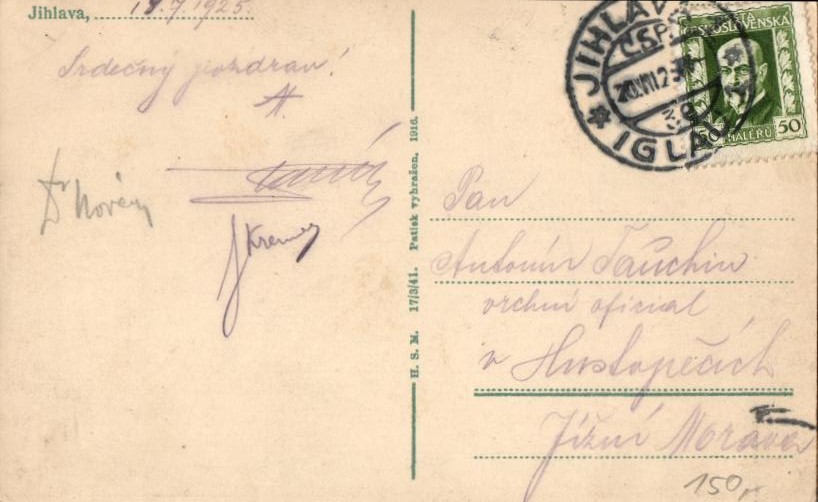 Jihlava, 18.7.1925.
Srdečný pozdrav!
Dr Novák
JKremer
H. S. M. 17/3/41. Patisk vyhražen. 1916.
JIHLAVA
ČSP
IGLAU
POŠTA
ČESKOSLOVENSKÁ
50 HALÉŘŮ 50
Pan
Antonín Tauchin
vrchní oficial
v Hustopečích
Jižní Morava
150,-